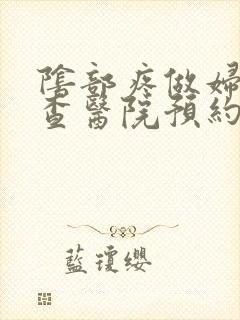 陰部疼做婦
查醫院預約
藍瓊纓